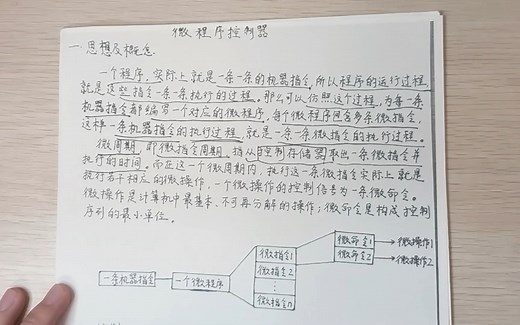 微程序控制器
一.思想及概念
一个程序,实际上就是一条一条的机器指令,所以程序的运行过程
就是这些指令一条一条执行的过程。那么可以仿照这个过程,为每一条
机器指令都编写一个对应的微程序,每个微程序包含多条微指令,
这样一条机器指令的执行过程,就是一条一条微指令的执行过程。
微周期,即微指令周期,指从控制存储器取出一条微指令并
执行的时间。而在这一个微周期内,执行这一条微指令实际上就是
执行若干相应的微操作,一个微操作的控制信号为一条微命令。
微操作是计算机中最基本、不可再分解的操作;微命令是构成控制
序列的最小单位。
一条机器指令
一个微程序
微指令1
微指令2
⋮
微指令n
微命令1
微命令2
微操作1
微操作2